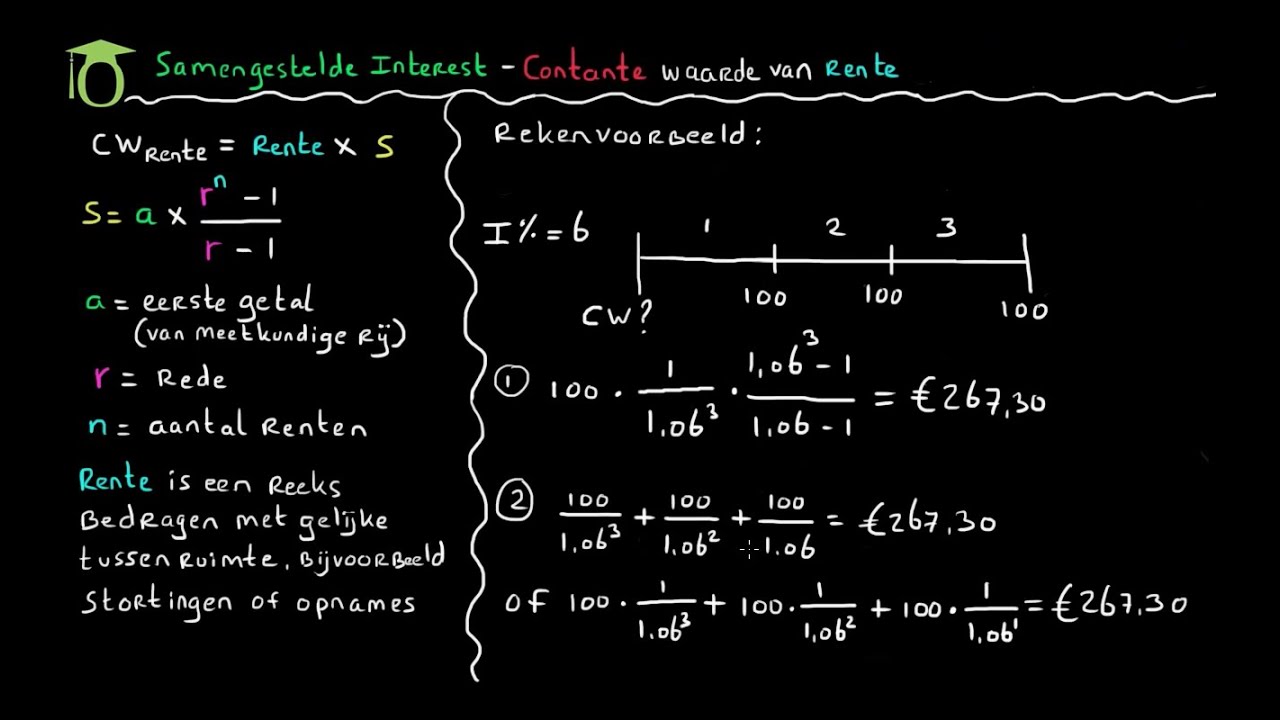 Samengestelde Interest - Contante waarde van Rente
CW Rente = Rente x S
S = a x (r^n - 1) / (r - 1)
a = eerste getal
(van meetkundige Rij)
r = Rede
n = aantal Renten
Rente is een Reeks
Bedragen met gelijke
tussenruimte, Bijvoorbeeld
Stortingen of opnames
Rekenvoorbeeld:
I% = 6
1 2 3
CW? 100 100 100
① 100 · 1/1,06^3 · (1,06^3 - 1)/(1,06 - 1) = €267,30
② 100/1,06^3 + 100/1,06^2 + 100/1,06 = €267,30
of 100 · 1/1,06^3 + 100 · 1/1,06^2 + 100 · 1/1,06^1 = €267,30